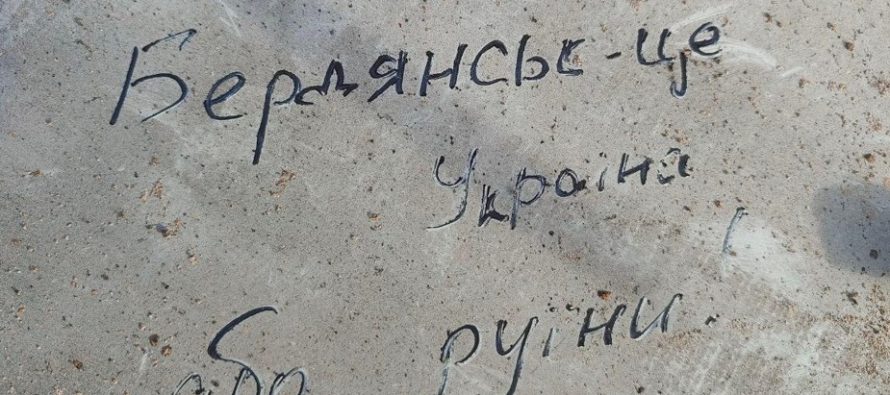 Бердянськ-це
Україна
або руїни!